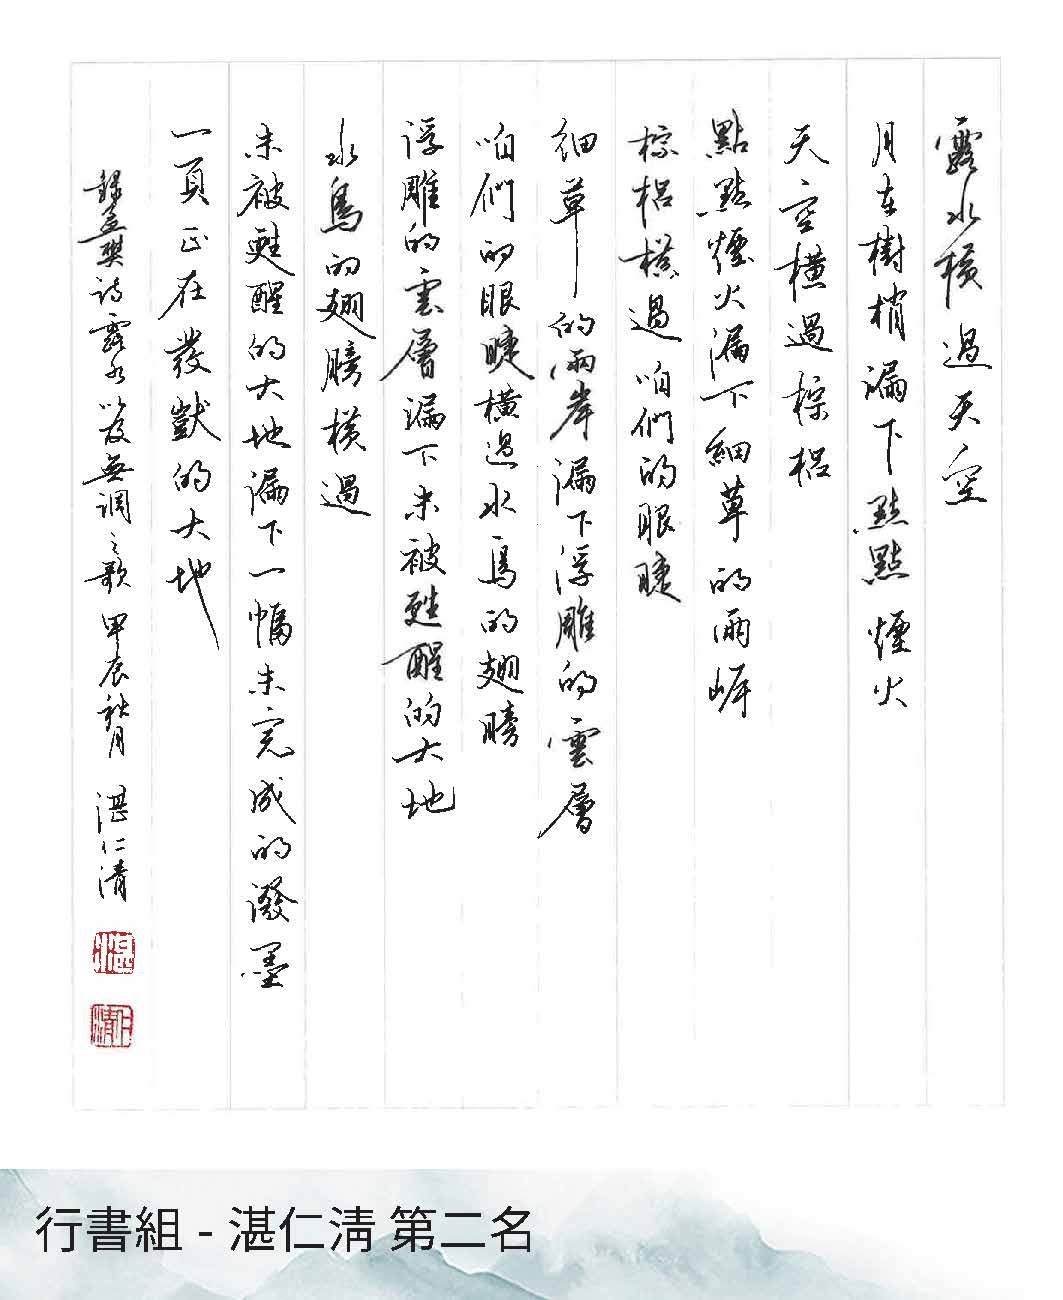 露水橫過天空
月在樹梢漏下點點煙火
天空橫過棕梠
點點煙火漏下細草的兩岸
棕梠橫過咱們的眼睫
細草的兩岸漏下浮雕的雲層
咱們的眼睫橫過水鳥的翅膀
浮雕的雲層漏下未被甦醒的大地
水鳥的翅膀橫過
未被甦醒的大地漏下一幅未完成的潑墨
一頁正在發獃的大地
錄孟樊詩露水以及無調之歌 甲辰秋月 湛仁清
湛
仁清
行書組 - 湛仁清 第二名